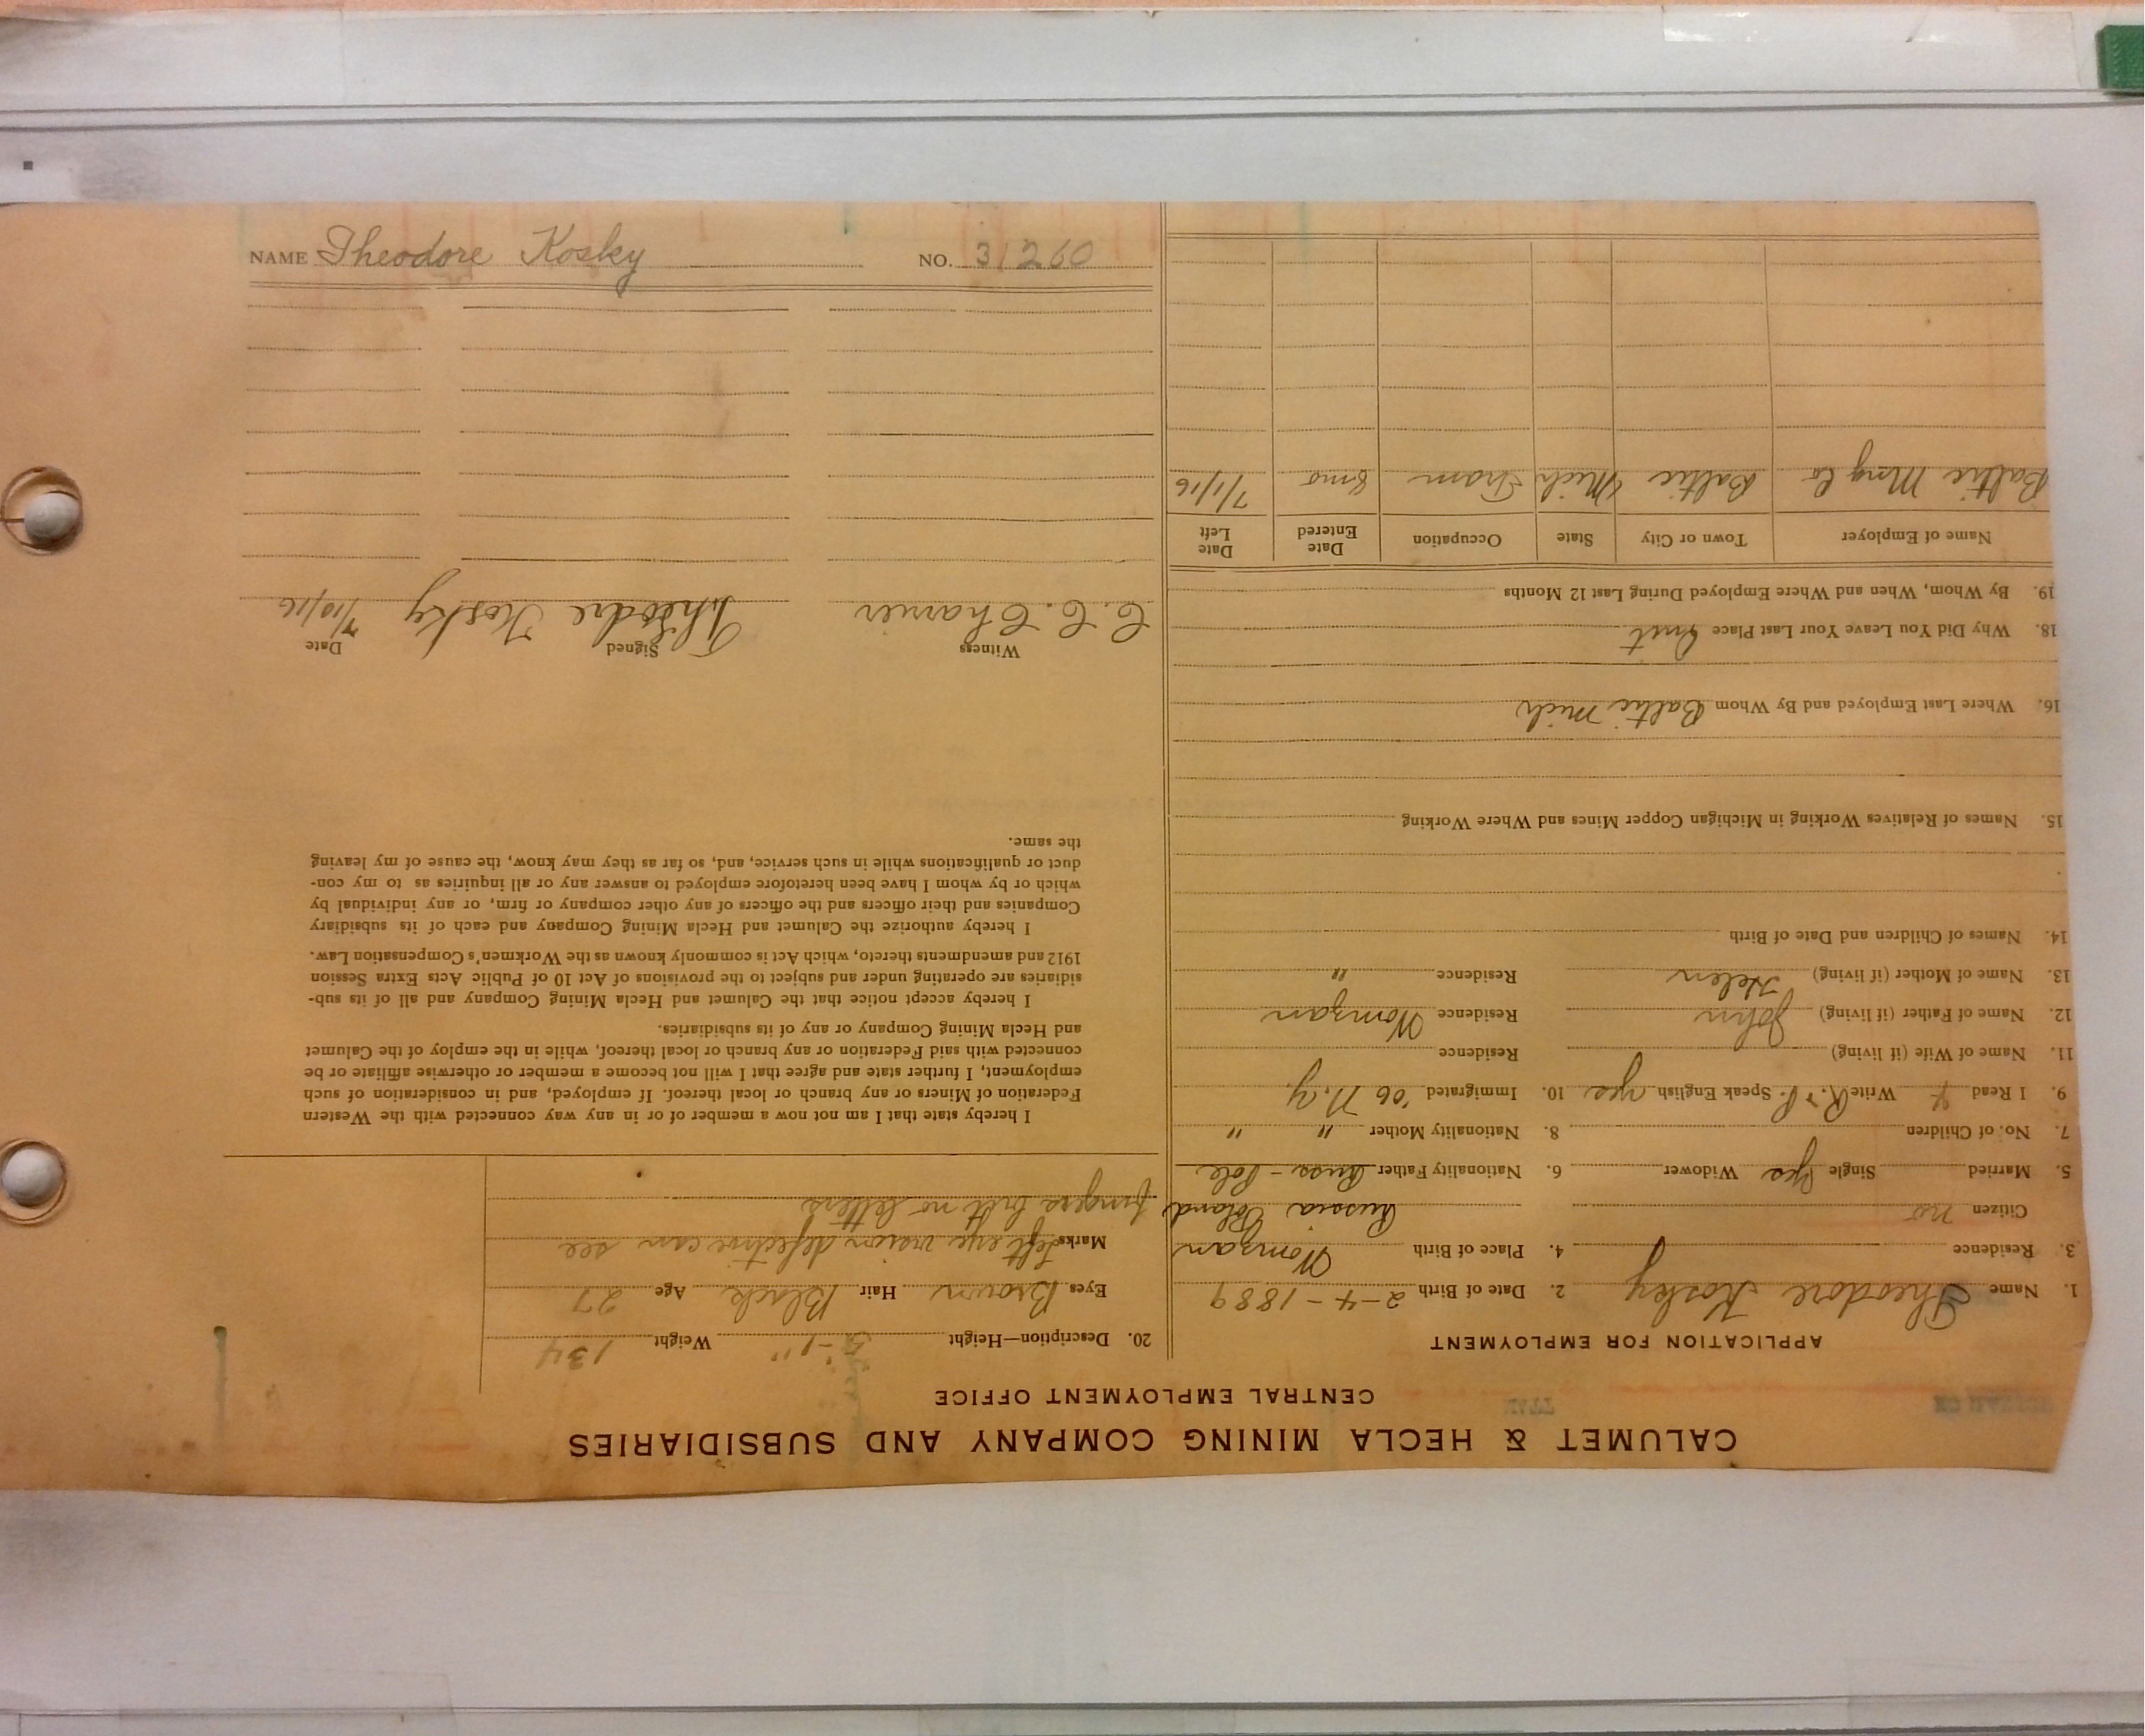 CALUMET & HECLA MINING COMPANY AND SUBSIDIARIES
CENTRAL EMPLOYMENT OFFICE
APPLICATION FOR EMPLOYMENT
1. Name Theodore Kosky 2. Date of Birth 2-4-1889
3. Residence 4. Place of Birth Womzan
Citizen no Russia Poland
5. Married Single yes Widower 6. Nationality Father Russ-Pole
7. No. of Children 8. Nationality Mother " "
9. I Read Write R. + P. Speak English yes 10. Immigrated '06 N.Y.
11. Name of Wife (if living) Residence
12. Name of Father (if living) John Residence Womzan
13. Name of Mother (if living) Helen Residence "
14. Names of Children and Date of Birth
15. Names of Relatives Working in Michigan Copper Mines and Where Working
16. Where Last Employed and By Whom Baltic Mich
18. Why Did You Leave Your Last Place Quit
19. By Whom, When and Where Employed During Last 12 Months
Name of Employer Town or City State Occupation Date Entered Date Left
Baltic Mng Co Baltic Mich Tram 8 mo 7/1/16
20. Description—Height 5'-1" Weight 134
Eyes Brown Hair Black Age 27
Marks Left eye vision defective can see
fingers but no letters
I hereby state that I am not now a member of or in any way connected with the Western
Federation of Miners or any branch or local thereof. If employed, and in consideration of such
employment, I further state and agree that I will not become a member or otherwise affiliate or be
connected with said Federation or any branch or local thereof, while in the employ of the Calumet
and Hecla Mining Company or any of its subsidiaries.
I hereby accept notice that the Calumet and Hecla Mining Company and all of its sub-
sidiaries are operating under and subject to the provisions of Act 10 of Public Acts Extra Session
1912 and amendments thereto, which Act is commonly known as the Workmen's Compensation Law.
I hereby authorize the Calumet and Hecla Mining Company and each of its subsidiary
Companies and their officers and the officers of any other company or firm, or any individual by
which or by whom I have been heretofore employed to answer any or all inquiries as to my con-
duct or qualifications while in such service, and, so far as they may know, the cause of my leaving
the same.
Witness Signed Date
C. C. Charrier Theodre Kosky 7/10/16
NAME Theodore Kosky NO. 31260